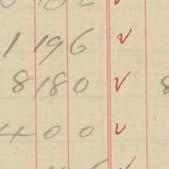 1 196 ✓
8 180 ✓ 8
400 ✓